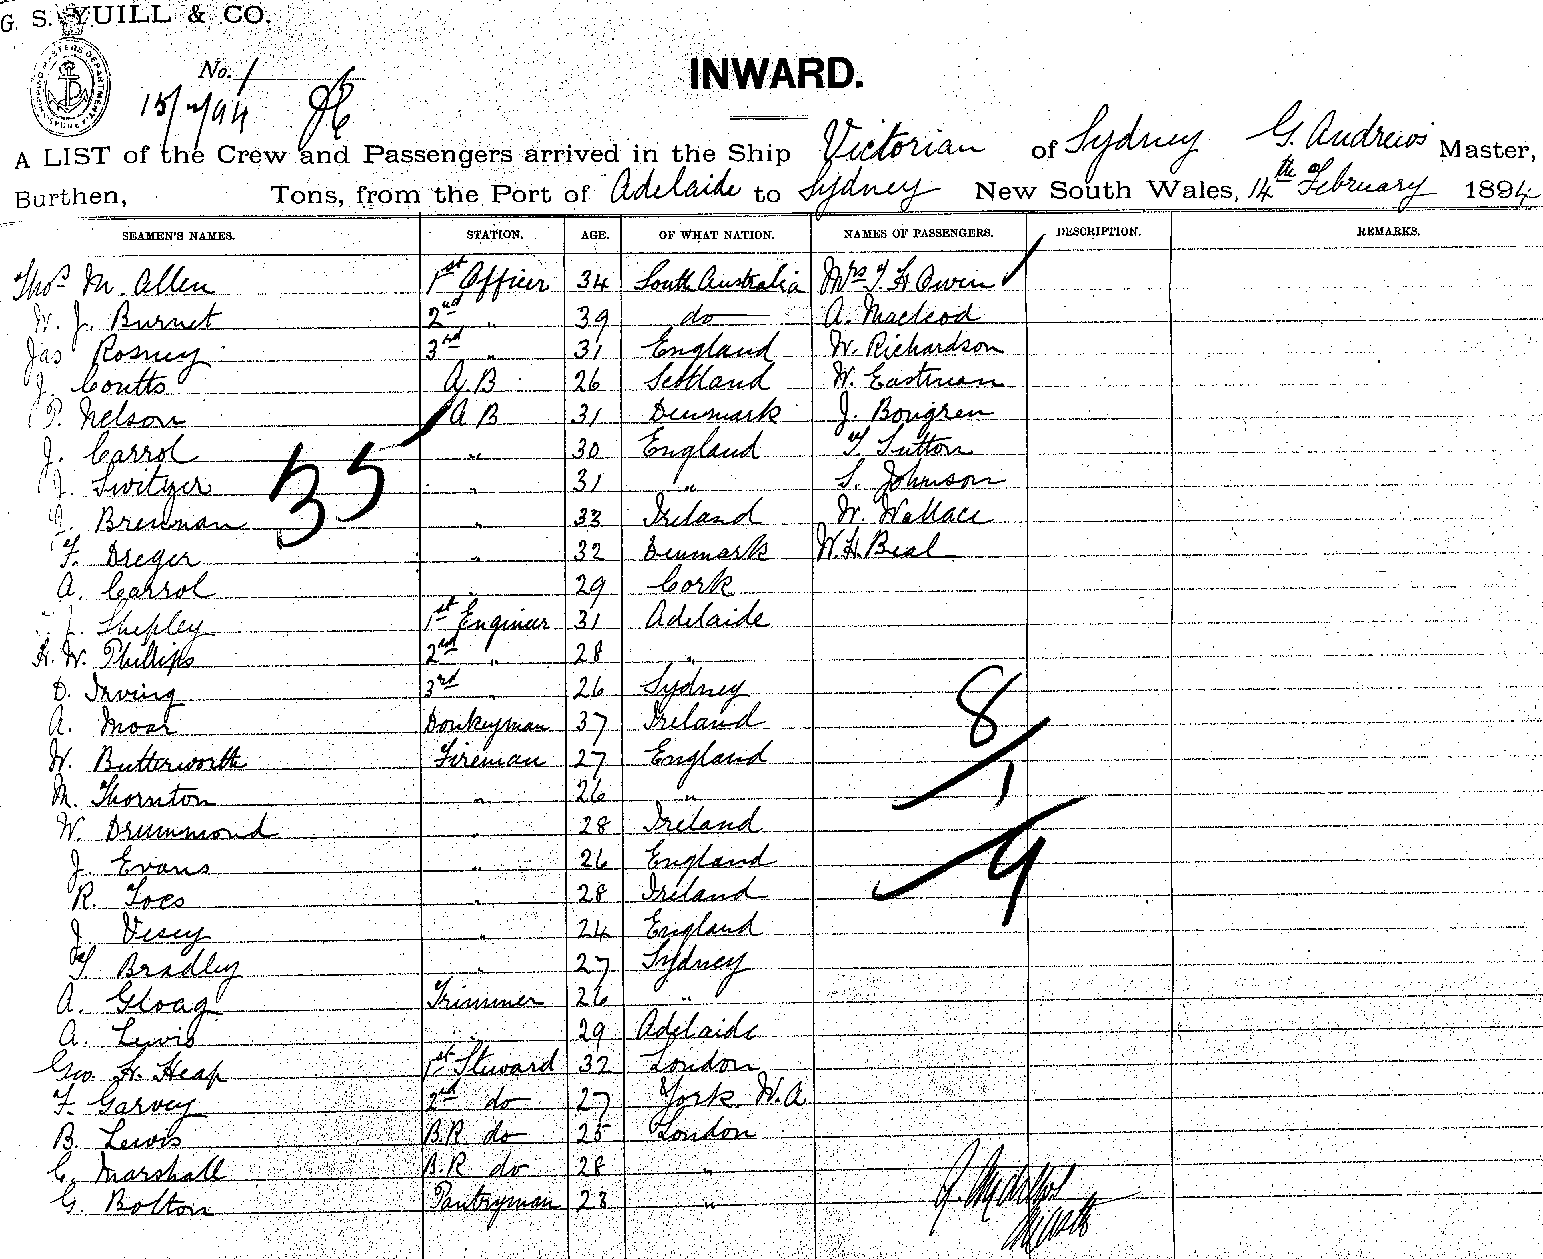 G. S. YUILL & CO.
No. 1
INWARD.
A LIST of the Crew and Passengers arrived in the Ship Victorian of Sydney G. Andrews Master,
Burthen, Tons, from the Port of Adelaide to Sydney New South Wales, 14th February 1894
SEAMEN'S NAMES. STATION. AGE. OF WHAT NATION. NAMES OF PASSENGERS. DESCRIPTION. REMARKS.
Thos M. Allen 1st Officer 34 South Australia Mrs T H Owen
W. J. Burnet 2nd " 39 do A. Macleod
Jas Rosney 3rd " 31 England W. Richardson
J. Coutts A B 26 Scotland W. Eastman
P. Nelson A B 31 Denmark J. Bongren
J. Carrol " 30 England T. Sutton
J. Switzer " 31 " S. Johnson
35
Brennan " 33 Ireland W. Wallace
F. Dreger " 32 Denmark W. H. Beal
A. Carrol 29 Cork
Shepley 1st Engineer 31 Adelaide
H. W. Phillips 2nd " 28 "
D. Irving 3rd " 26 Sydney
8
A. Moar Donkeyman 37 Ireland
W. Butterworth Fireman 27 England
1
M. Thornton " 26 "
W. Drummond " 28 Ireland
J. Evans " 26 England
9
R. Toes " 28 Ireland
J Vesey " 24 England
T. Bradley " 27 Sydney
A. Gloag Trimmer 26 "
A. Lewis 29 Adelaide
Geo. H. Heap 1st Steward 32 London
F. Garvey 2nd do 27 York W. A
B. Lewis B.R. do 25 London
C. Marshall B.R do 28 "
G Bolton Pantryman 23 "